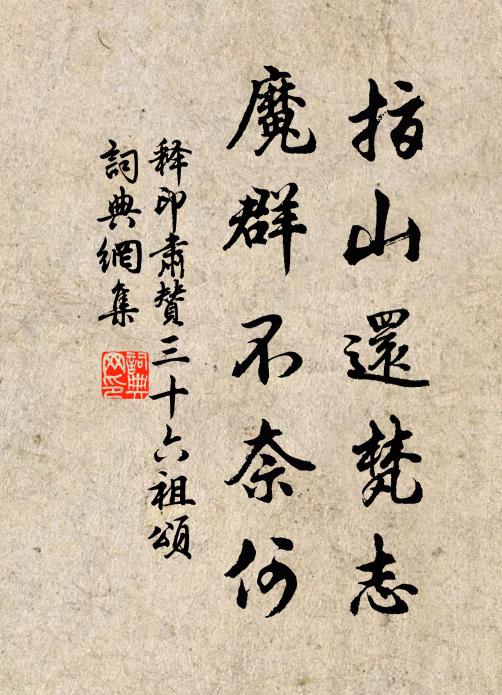 指山還梵志
魔群不奈何
释印肅贊三十六祖頌
詞典網集
詞典網印